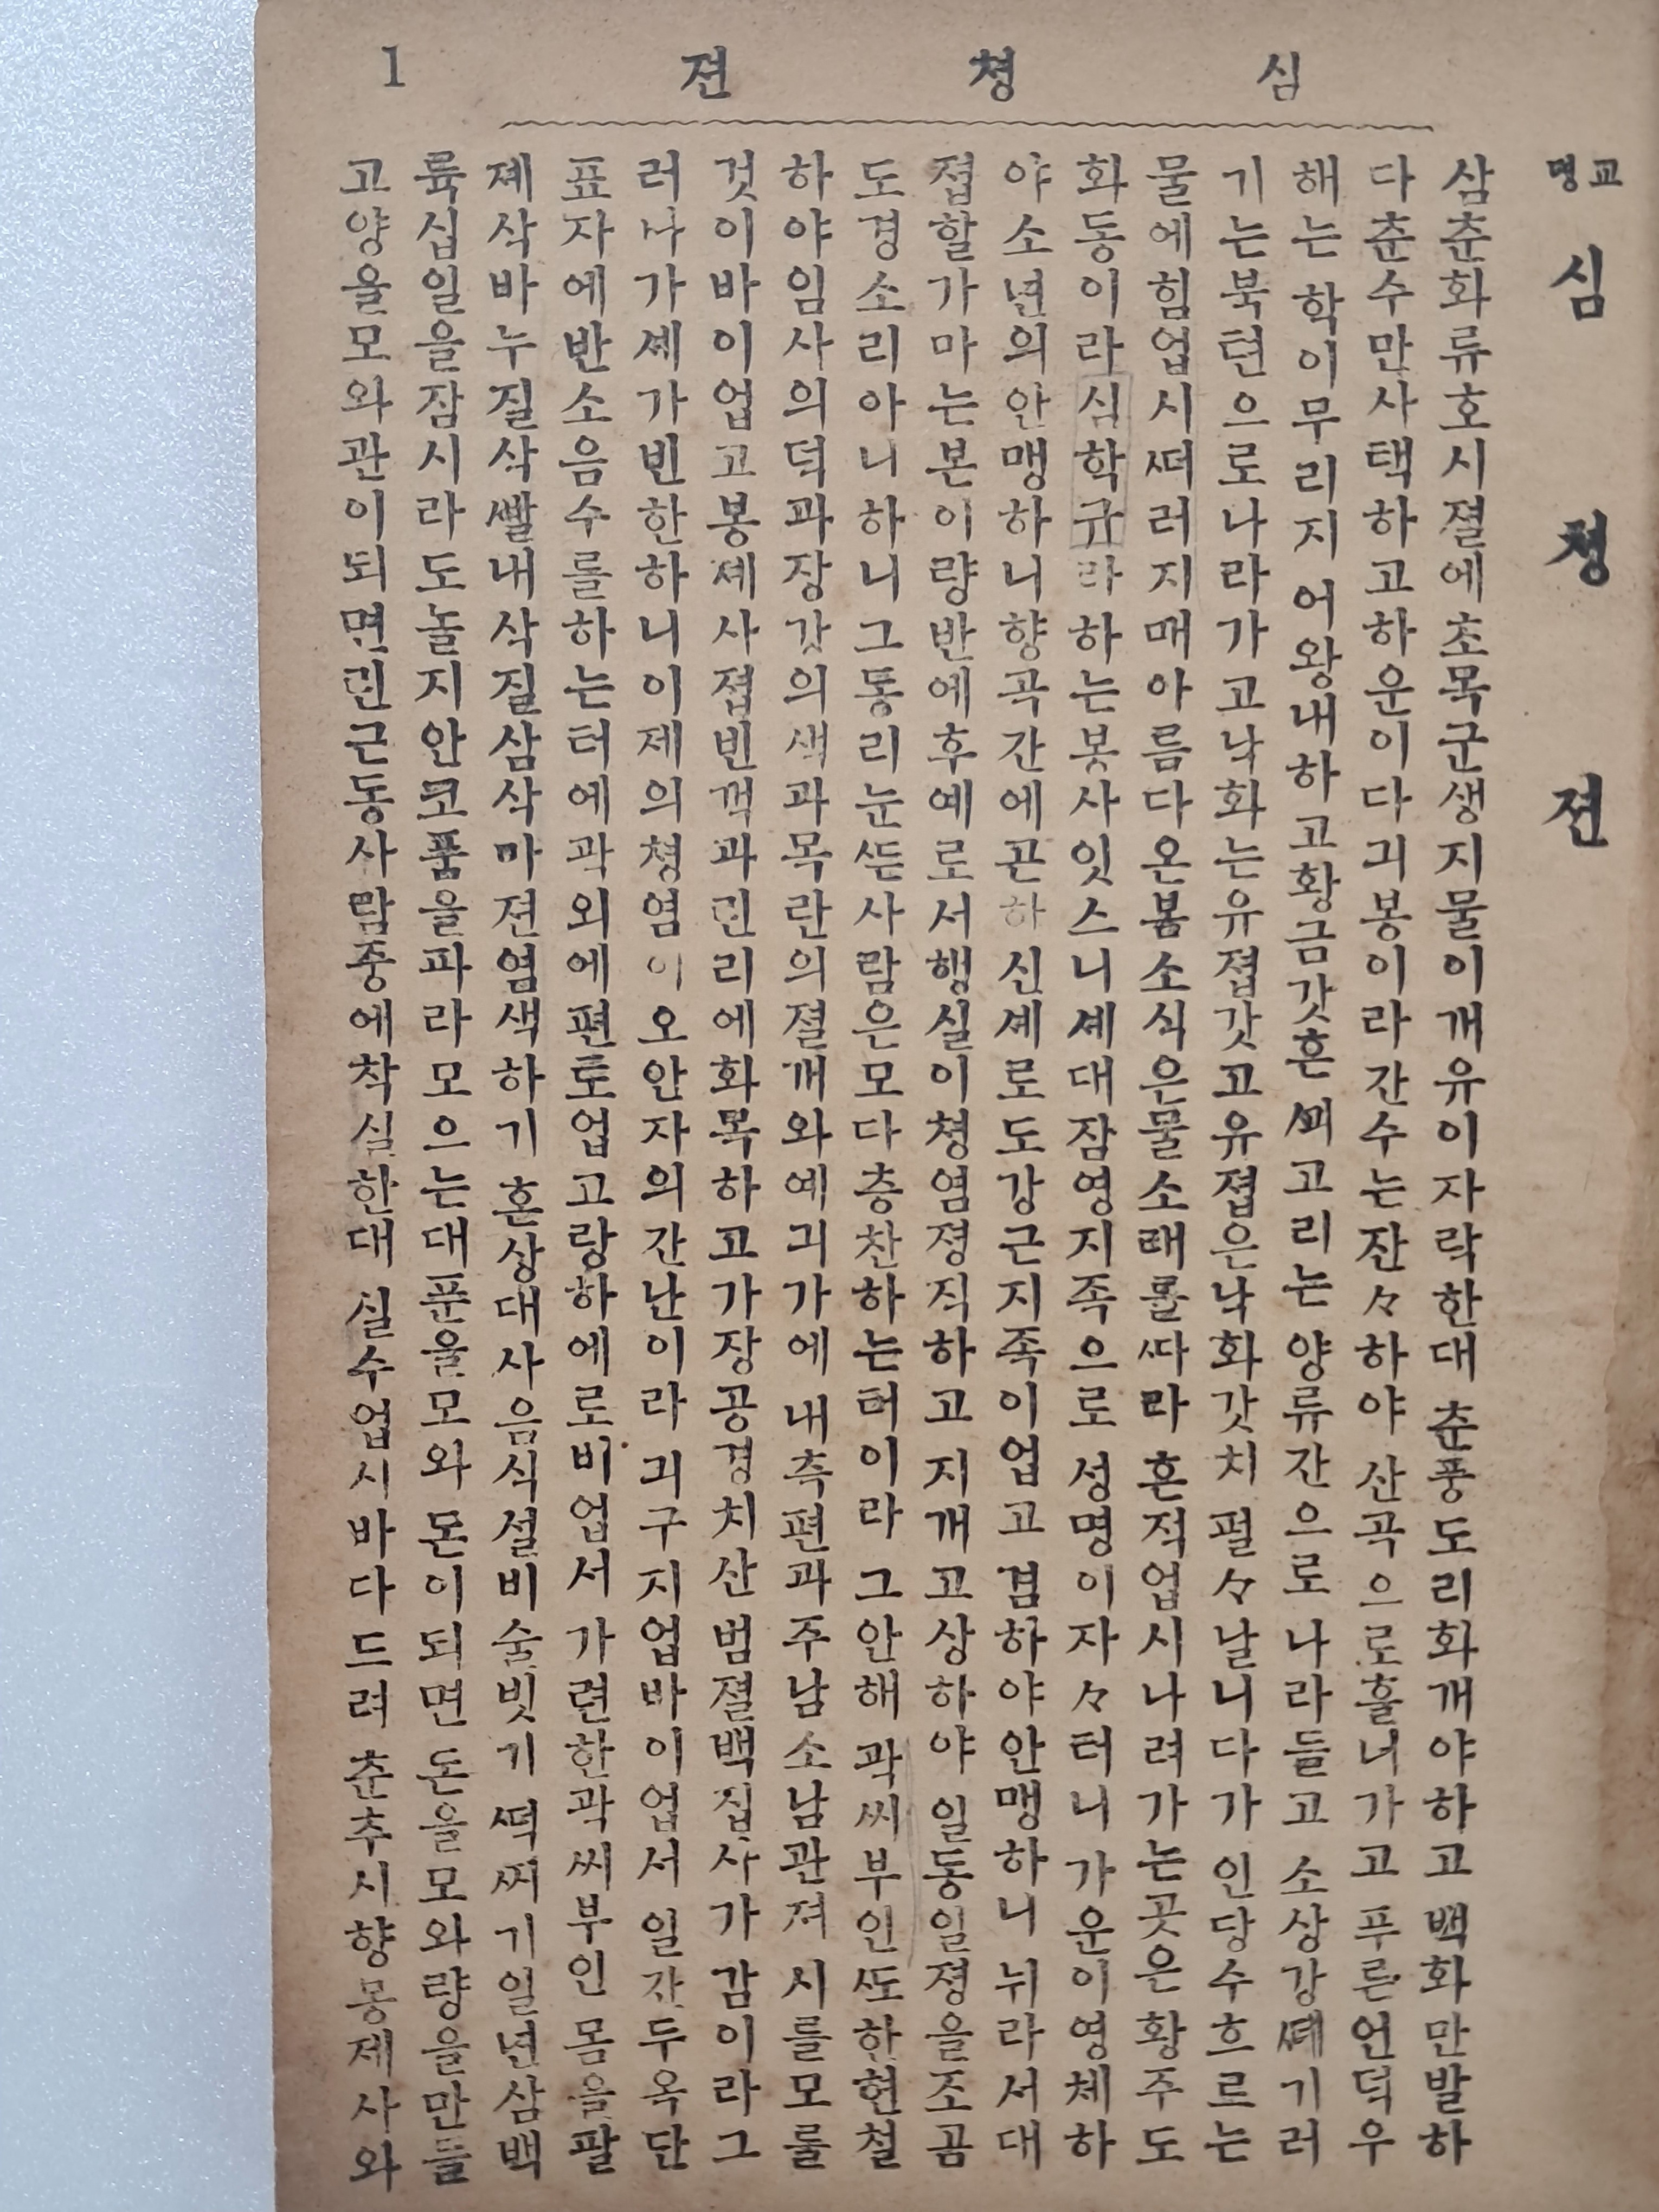 심 쳥 젼
1
교명 심 쳥 젼
삼춘화류호시졀에초목군생지물이개유이자락한대 춘풍도리화개야하고 백화만발하
다춘수만사택하고하운이다긔봉이라간수는잔々하야 산곡으로흘너가고 푸른언덕우
해는 학이무리지 어왕내하고황금갓흔 ᄭᅬ고리는 양류간으로나라들고 소상강ᄯᅦ기러
기는북텬으로나라가고낙화는유졉갓고유졉은낙화갓치 펄々날니다가 인당수흐르는
물에힘업시ᄯᅥ러지매아름다온봄소식은물소래를ᄯᅡ라 흔적업시나려가는곳은황주도
화동이라심학규라하는봇사잇스니셰대잠영지족으로 성명이자々터니 가운이영체하
야소년의안맹하니향곡간에곤하신셰로도강근지족이업고 겸하야안맹하니 뉘라서대
졉할가마는본이량반에후예로서행실이쳥염졍직하고 지개고상하야 일동일졍을조곰
도경소리아니하니그동리눈ᄯᅳᆫ사람은모다층찬하는터이라 그안해 곽씨부인ᄯᅩ한현철
하야임사의덕과장강의색과목란의졀개와예긔가에 내측편과 주남소남관져 시를모를
것이바이업고봉졔사졉빈객과린리에화목하고가장공경치산 범졀백집사가감이라그
러나가셰가빈한하니이제의쳥염이오안자의간난이라 긔구지업바이업서 일간두옥단
표자에반소음수를하는터에곽외에편토업고랑하에로비업서 가련한곽씨부인 몸을팔
졔삭바누질삭ᄲᅡᆯ내삭질삼삭마젼염색하기 혼상대사음식설비술빗기 ᄯᅥᆨᄶᅵ기일년삼백
륙십일을잠시라도놀지안코품을파라모으는대푼을모와 돈이되면 돈을모와량을만들
고양을모와관이되면린근동사람중에착실한대 실수업시바다드려 춘추시향봉제사와